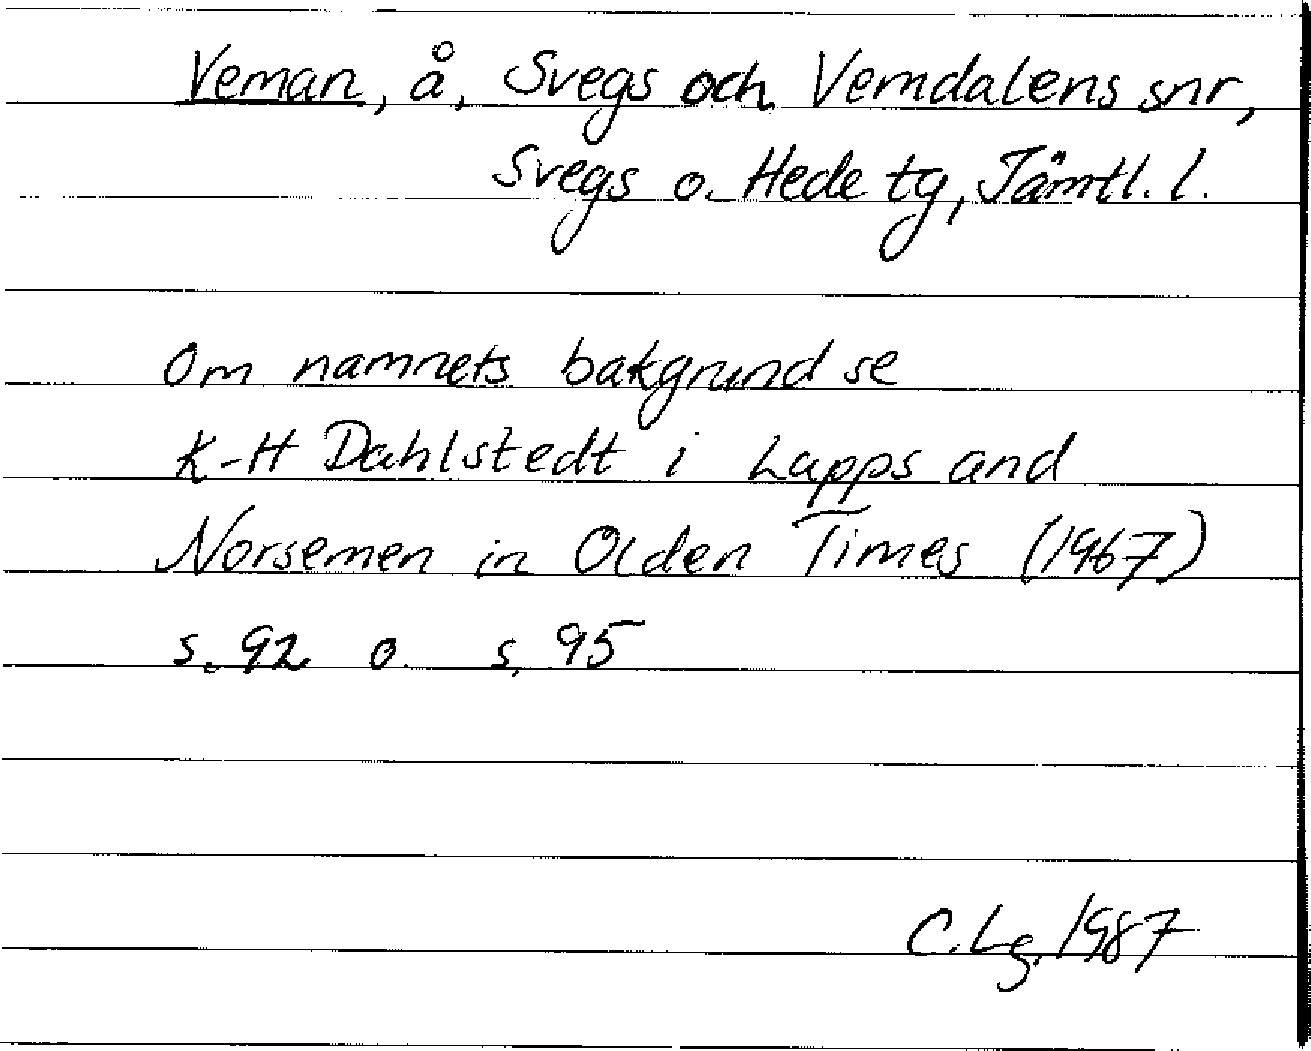 Veman, å, Svegs och Vemdalens snr,
Svegs o. Hede tg, Jämtl. l.
Om namnets bakgrund se
K-H Dahlstedt i Lapps and
Norsemen in Olden Times (1967)
s. 92 o. s. 95
C. Lg. 1987